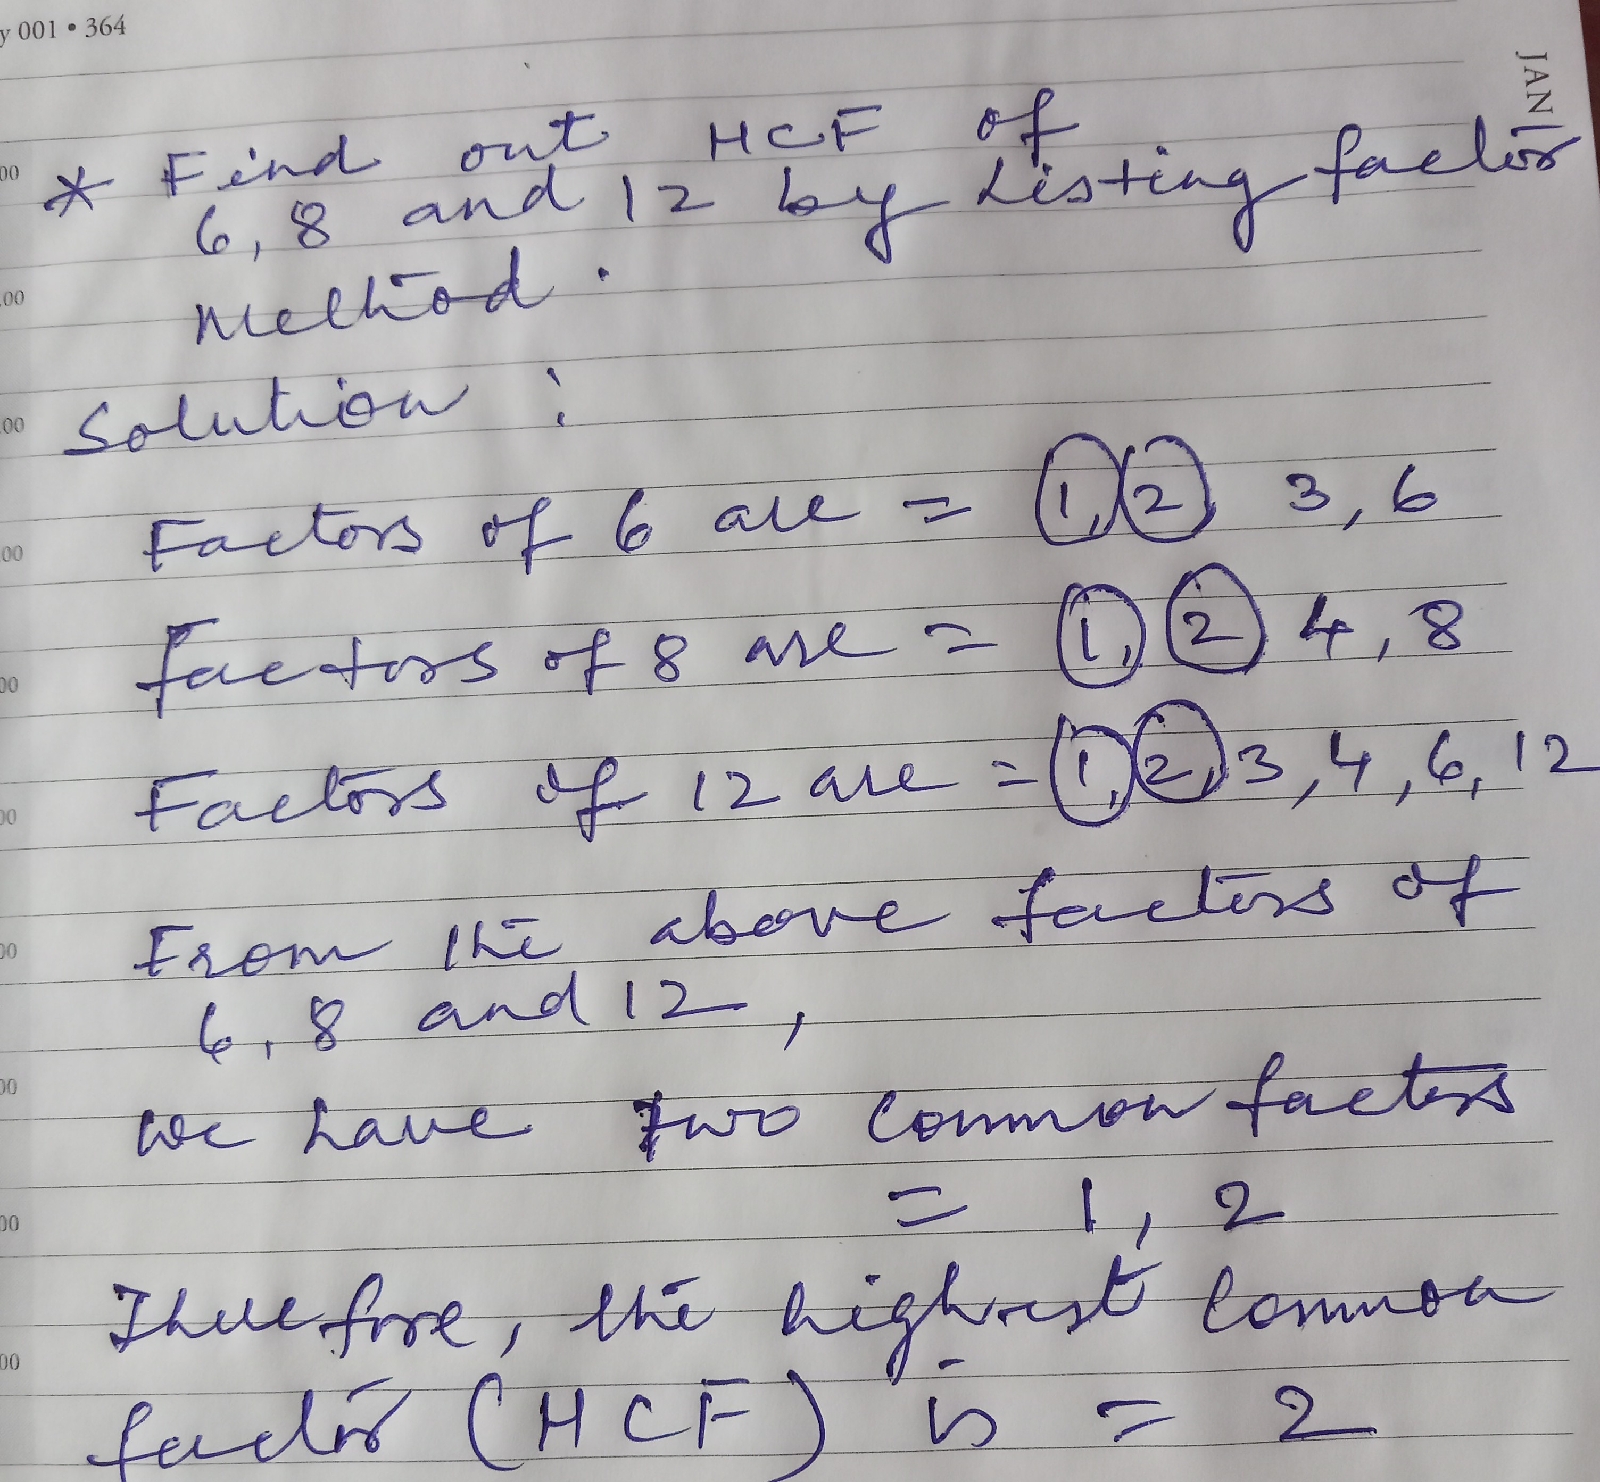 y 001 • 364
JAN
* Find out HCF of
6, 8 and 12 by Listing factor
Method.
Solution :
Factors of 6 are = 1, 2, 3, 6
factors of 8 are = 1, 2, 4, 8
Factors of 12 are = 1, 2, 3, 4, 6, 12
From the above factors of
6, 8 and 12,
we have two common factors
= 1, 2
Therefore, the highest common
factor (HCF) is = 2